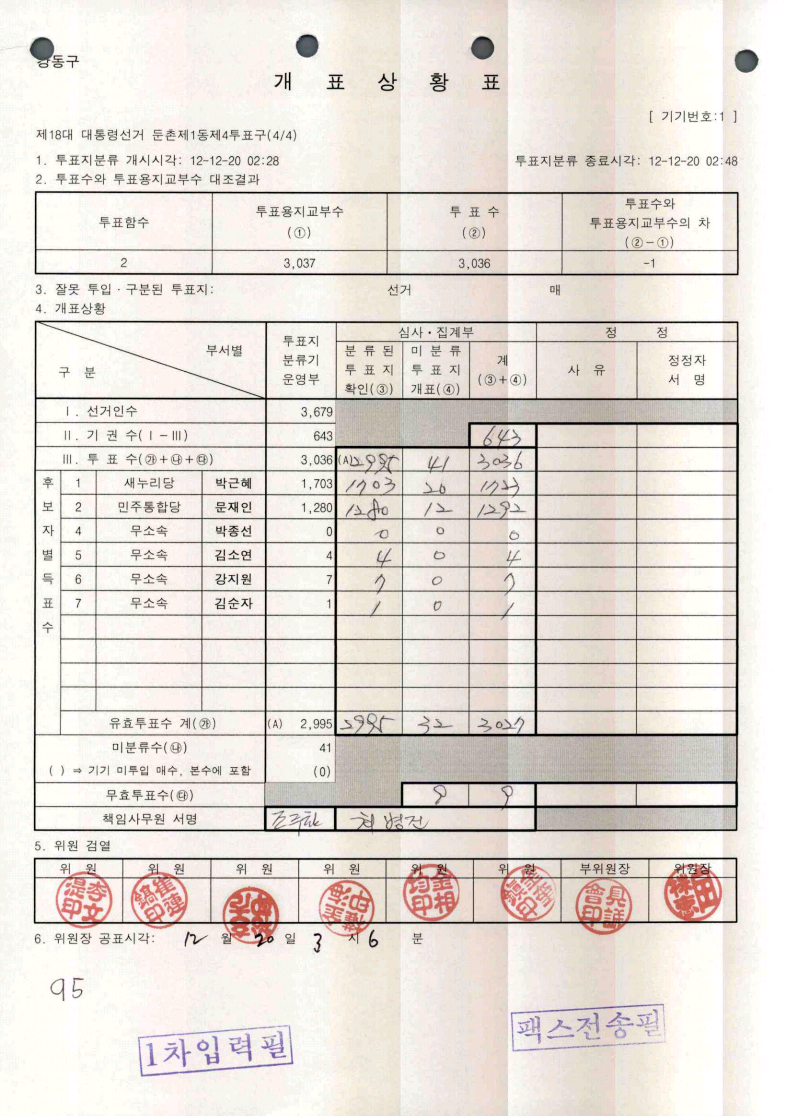 강동구
개 표 상 황 표
[ 기기번호:1 ]
제18대 대통령선거 둔촌제1동제4투표구(4/4)
1. 투표지분류 개시시각: 12-12-20 02:28 투표지분류 종료시각: 12-12-20 02:48
2. 투표수와 투표용지교부수 대조결과
투표함수 투표용지교부수 (①) 투 표 수 (②) 투표수와 투표용지교부수의 차 (②-①)
2 3,037 3,036 -1
3. 잘못 투입·구분된 투표지: 선거 매
4. 개표상황
구 분 부서별 투표지 분류기 운영부 심사·집계부 정 정
분 류 된 투 표 지 확인(③) 미 분 류 투 표 지 개표(④) 계 (③+④) 사 유 정정자 서 명
Ⅰ. 선거인수 3,679
Ⅱ. 기 권 수(Ⅰ-Ⅲ) 643 643
Ⅲ. 투 표 수(㉮+㉯+㉰) 3,036 (A)2995 41 3036
후보자별득표수
1 새누리당 박근혜 1,703 1703 20 1723
2 민주통합당 문재인 1,280 1280 12 1292
4 무소속 박종선 0 0 0 0
5 무소속 김소연 4 4 0 4
6 무소속 강지원 7 7 0 7
7 무소속 김순자 1 1 0 1
유효투표수 계(㉮) (A) 2,995 2995 32 3027
미분류수(㉯) 41
( ) ⇒ 기기 미투입 매수, 본수에 포함 (0)
무효투표수(㉰) 9 9
책임사무원 서명
5. 위원 검열
위 원 위 원 위 원 위 원 위 원 위 원 부위원장 위원장
6. 위원장 공표시각: 12 월 20 일 3 시 6 분
95
1차입력필
팩스전송필